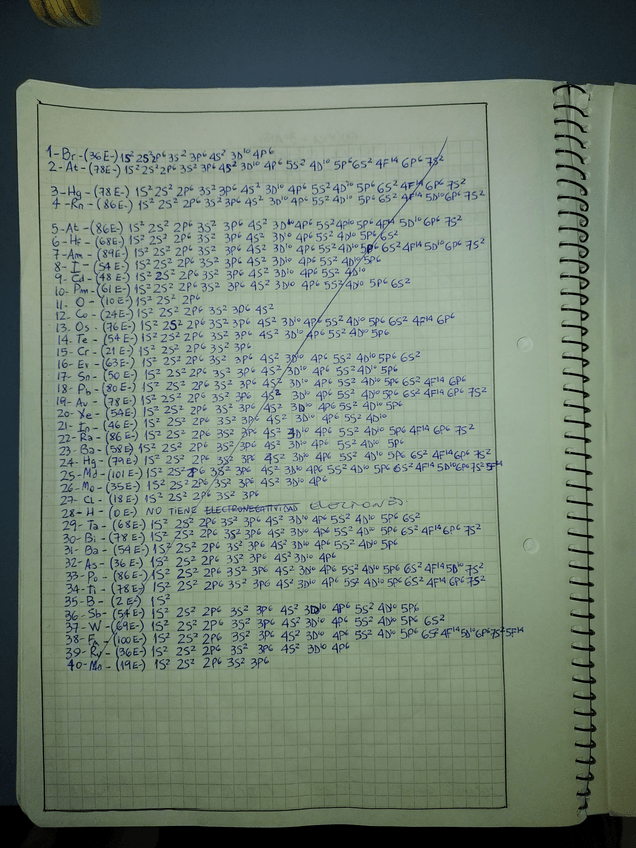 1- Br - (36E-) 1S² 2S² 2P⁶ 3S² 3P⁶ 4S² 3D¹⁰ 4P⁶
2- At - (78E-) 1S² 2S² 2P⁶ 3S² 3P⁶ 4S² 3D¹⁰ 4P⁶ 5S² 4D¹⁰ 5P⁶ 6S² 4F¹⁴ 6P⁶ 7S²
3- Hg - (78E-) 1S² 2S² 2P⁶ 3S² 3P⁶ 4S² 3D¹⁰ 4P⁶ 5S² 4D¹⁰ 5P⁶ 6S² 4F¹⁴ 6P⁶ 7S²
4- Rn - (86E-) 1S² 2S² 2P⁶ 3S² 3P⁶ 4S² 3D¹⁰ 4P⁶ 5S² 4D¹⁰ 5P⁶ 6S² 4F¹⁴ 5D¹⁰ 6P⁶ 7S²
5- At - (86E-) 1S² 2S² 2P⁶ 3S² 3P⁶ 4S² 3D¹⁰ 4P⁶ 5S² 4P¹⁰ 5P⁶ 4F¹⁴ 5D¹⁰ 6P⁶ 7S²
6- Hf - (68E-) 1S² 2S² 2P⁶ 3S² 3P⁶ 4S² 3D¹⁰ 4P⁶ 5S² 4D¹⁰ 5P⁶ 6S²
7- Am - (89E-) 1S² 2S² 2P⁶ 3S² 3P⁶ 4S² 3D¹⁰ 4P⁶ 5S² 4D¹⁰ 5P⁶ 6S² 4F¹⁴ 5D¹⁰ 6P⁶ 7S²
8- I - (54E-) 1S² 2S² 2P⁶ 3S² 3P⁶ 4S² 3D¹⁰ 4P⁶ 5S² 4D¹⁰ 5P⁶
9- Cd - (48E-) 1S² 2S² 2P⁶ 3S² 3P⁶ 4S² 3D¹⁰ 4P⁶ 5S² 4D¹⁰
10- Pm - (61E-) 1S² 2S² 2P⁶ 3S² 3P⁶ 4S² 3D¹⁰ 4P⁶ 5S² 4D¹⁰ 5P⁶ 6S²
11. O - (10E-) 1S² 2S² 2P⁶
12. Co - (24E-) 1S² 2S² 2P⁶ 3S² 3P⁶ 4S²
13. Os - (76E-) 1S² 2S² 2P⁶ 3S² 3P⁶ 4S² 3D¹⁰ 4P⁶ 5S² 4D¹⁰ 5P⁶ 6S² 4F¹⁴ 6P⁶
14- Te - (54E-) 1S² 2S² 2P⁶ 3S² 3P⁶ 4S² 3D¹⁰ 4P⁶ 5S² 4D¹⁰ 5P⁶
15- Cr - (21E-) 1S² 2S² 2P⁶ 3S² 3P⁶
16- Eu - (63E-) 1S² 2S² 2P⁶ 3S² 3P⁶ 4S² 3D¹⁰ 4P⁶ 5S² 4D¹⁰ 5P⁶ 6S²
17- Sn - (50E-) 1S² 2S² 2P⁶ 3S² 3P⁶ 4S² 3D¹⁰ 4P⁶ 5S² 4D¹⁰ 5P⁶
18- Pb - (80E-) 1S² 2S² 2P⁶ 3S² 3P⁶ 4S² 3D¹⁰ 4P⁶ 5S² 4D¹⁰ 5P⁶ 6S² 4F¹⁴ 6P⁶
19- Au - (78E-) 1S² 2S² 2P⁶ 3S² 3P⁶ 4S² 3D¹⁰ 4P⁶ 5S² 4D¹⁰ 5P⁶ 6S² 4F¹⁴ 6P⁶ 7S²
20- Xe - (54E-) 1S² 2S² 2P⁶ 3S² 3P⁶ 4S² 3D¹⁰ 4P⁶ 5S² 4D¹⁰ 5P⁶
21- In - (46E-) 1S² 2S² 2P⁶ 3S² 3P⁶ 4S² 3D¹⁰ 4P⁶ 5S² 4D¹⁰
22- Ra - (86E-) 1S² 2S² 2P⁶ 3S² 3P⁶ 4S² 3D¹⁰ 4P⁶ 5S² 4D¹⁰ 5P⁶ 6S² 4F¹⁴ 6P⁶ 7S²
23- Ba - (58E-) 1S² 2S² 2P⁶ 3S² 3P⁶ 4S² 3D¹⁰ 4P⁶ 5S² 4D¹⁰ 5P⁶
24- Hg - (79E-) 1S² 2S² 2P⁶ 3S² 3P⁶ 4S² 3D¹⁰ 4P⁶ 5S² 4D¹⁰ 5P⁶ 6S² 4F¹⁴ 6P⁶ 7S²
25- Md - (101E-) 1S² 2S² 2P⁶ 3S² 3P⁶ 4S² 3D¹⁰ 4P⁶ 5S² 4D¹⁰ 5P⁶ 6S² 4F¹⁴ 5D¹⁰ 6P⁶ 7S² 5F¹⁴
26- Mo - (35E-) 1S² 2S² 2P⁶ 3S² 3P⁶ 4S² 3D¹⁰ 4P⁶
27- Cl - (18E-) 1S² 2S² 2P⁶ 3S² 3P⁶
28- H - (0E-) NO TIENE ELECTRONEGATIVIDAD ELECTRONES.
29- Ta - (68E-) 1S² 2S² 2P⁶ 3S² 3P⁶ 4S² 3D¹⁰ 4P⁶ 5S² 4D¹⁰ 5P⁶ 6S²
30- Bi - (78E-) 1S² 2S² 2P⁶ 3S² 3P⁶ 4S² 3D¹⁰ 4P⁶ 5S² 4D¹⁰ 5P⁶ 6S² 4F¹⁴ 6P⁶ 7S²
31- Ba - (54E-) 1S² 2S² 2P⁶ 3S² 3P⁶ 4S² 3D¹⁰ 4P⁶ 5S² 4D¹⁰ 5P⁶
32- As - (36E-) 1S² 2S² 2P⁶ 3S² 3P⁶ 4S² 3D¹⁰ 4P⁶
33- Po - (86E-) 1S² 2S² 2P⁶ 3S² 3P⁶ 4S² 3D¹⁰ 4P⁶ 5S² 4D¹⁰ 5P⁶ 6S² 4F¹⁴ 5D¹⁰ 7S²
34- Ti - (78E-) 1S² 2S² 2P⁶ 3S² 3P⁶ 4S² 3D¹⁰ 4P⁶ 5S² 4D¹⁰ 5P⁶ 6S² 4F¹⁴ 6P⁶ 7S²
35- B - (2E-) 1S²
36- Sb - (54E-) 1S² 2S² 2P⁶ 3S² 3P⁶ 4S² 3D¹⁰ 4P⁶ 5S² 4D¹⁰ 5P⁶
37- W - (69E-) 1S² 2S² 2P⁶ 3S² 3P⁶ 4S² 3D¹⁰ 4P⁶ 5S² 4D¹⁰ 5P⁶ 6S²
38- (100E-) 1S² 2S² 2P⁶ 3S² 3P⁶ 4S² 3D¹⁰ 4P⁶ 5S² 4D¹⁰ 5P⁶ 6S² 4F¹⁴ 5D¹⁰ 6P⁶ 7S² 5F¹⁴
39- (36E-) 1S² 2S² 2P⁶ 3S² 3P⁶ 4S² 3D¹⁰ 4P⁶
40- Mn - (19E-) 1S² 2S² 2P⁶ 3S² 3P⁶